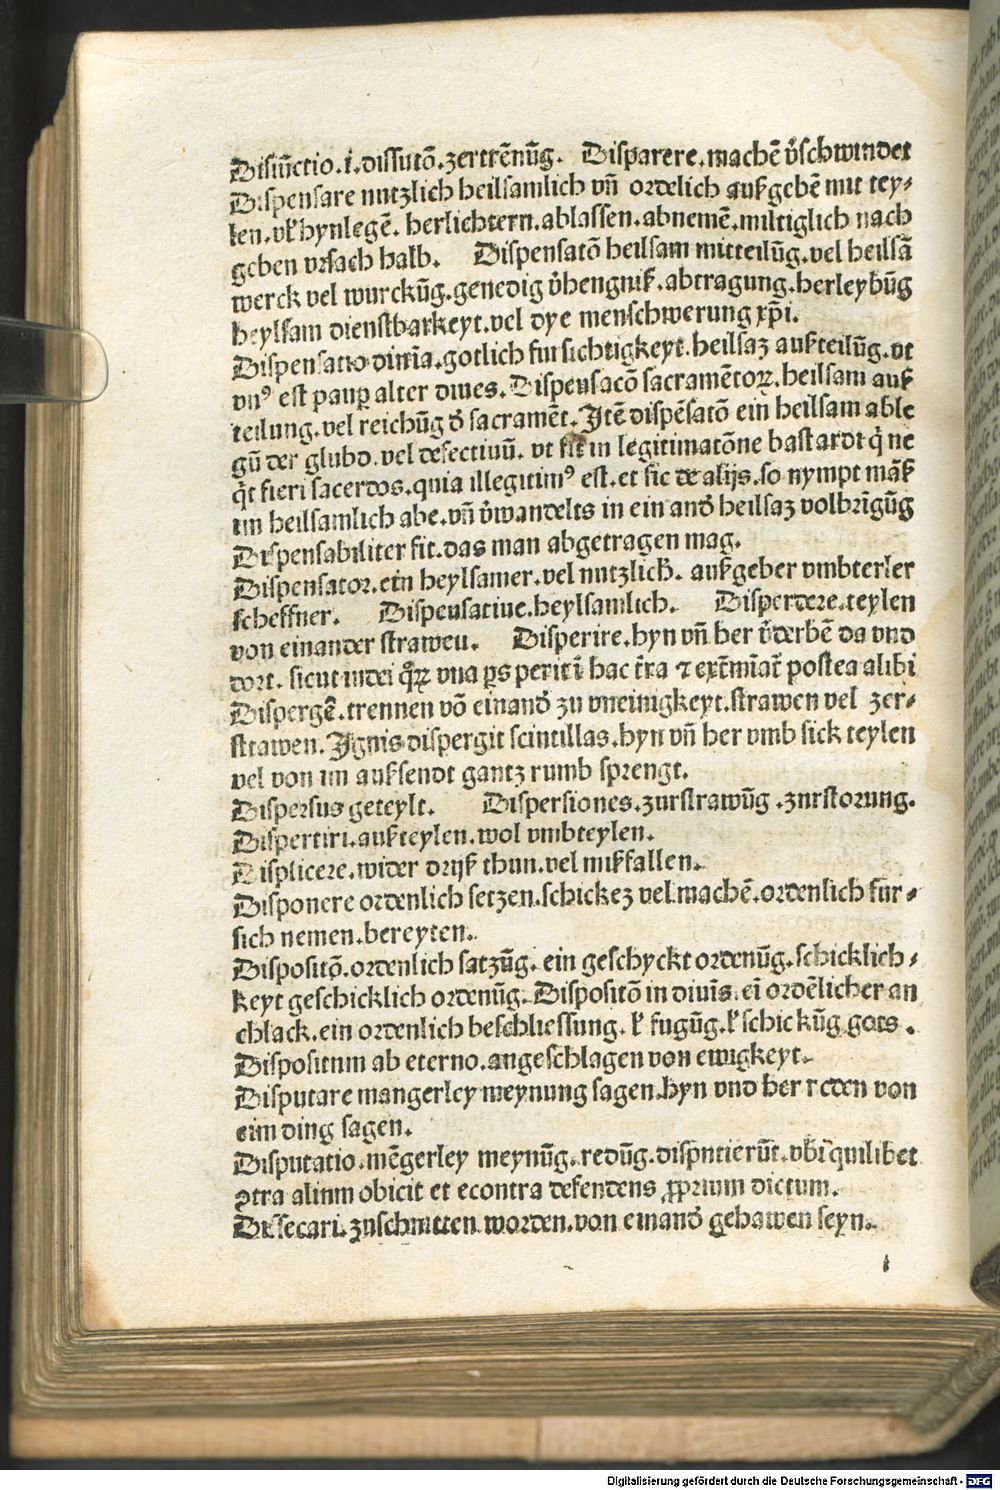 Disiūctio.i.dissutō.zertrēnūg. Disparere.machē v̉schwindet
Dispensare nutzlich heilsamlich vñ ordelich außgebē mit tey⸗
len.vß hynlegē. herlichtern.ablassen.abnemē.miltiglich nach
geben vrsach halb. Dispensatō heilsam mitteilūg.vel heilsā
werck vel wurckūg.genedig v̉hengniß.abtragung.herleybūg
heylsam dienstbarkeyt.vel dye menschwerung xp̄i.
Dispensatio diuīa.gotlich fursichtigkeyt.heilsaz außteilūg.vt
vnꝰ est paup alter diues. Dispensacō sacramētoꝝ.heilsam auß
teilung.vel reichūg d̕ sacramēt. Jtē dispēsatō ein heilsam able
gūg der glubd.vel defectiuū. vt sit in legitimatōne bastardt q̇ ne
q̇t fieri sacerdos.quia illegitimꝰ est.et sic de alijs.so nympt mā ß
im heilsamlich abe.vñ v̉wandelts in ein and̕ heilsaz volbrīgūg
Dispensabiliter fit.das man abgetragen mag.
Dispensator.ein heylsamer.vel nutzlich̕. außgeber vmbterler
scheffner. Dispensatiue.heylsamlich. Disperdere.teylen
von einander straweu. Disperire.hyn vñ her v̉derbē da vnd
dort. sicut iudei q̊ꝝ vna ps periit ī hac t̄ra ⁊ ext̄mīat̄ postea alibi
Dispergē.trennen vō einand̕ zu vneinigkeyt.strawen vel zer⸗
strawen. Jgnis dispergit scintillas.hyn vñ her vmb sick teylen
vel von im außsendt gantz rumb sprengt.
Dispersus geteylt. Dispersiones.zurstrawūg.znrstorung.
Dispertiri.außteylen.wol vmbteylen.
Displicere.wider drijß thun.vel mißfallen.
Disponere ordenlich setzen.schickez vel machē.ordenlich fur⸗
sich nemen.bereyten.
Dispositō.ordenlich satzūg.ein geschyckt ordenūg.schicklich⸗
keyt geschicklich ordenūg. Dispositō in diuīs.eī ordēlicher an
chlack.ein ordenlich beschliessung.ß fugūg.ß schickūg gots.
Dispositnm ab eterno.angeschlagen von ewigkeyt.
Disputare mangerley meynung sagen.hyn vnd her reden von
eim ding sagen.
Disputatio.mēgerley meynūg.redūg.dispntierūt.vbi q̇uilibet
ꝯtra alinm obicit et econtra defendens ꝓprium dictum.
Dissecari.zuschnitten worden.von einand̕ gehawen seyn.
i
Digitalisierung gefördert durch die Deutsche Forschungsgemeinschaft - DFG